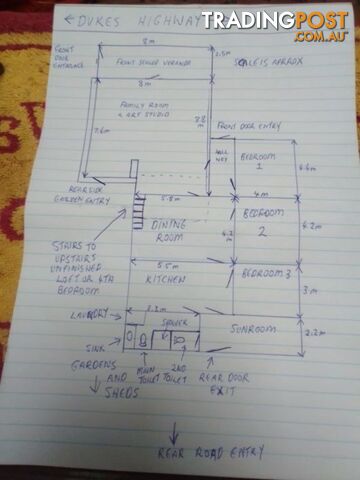 ← DUKES HIGHWAY
TRADINGPOST
.COM.AU
FRONT
DOOR
ENTRANCE
8m
2.5m
SCALE IS APPROX
FRONT VERANDA
8m
FAMILY ROOM
& ART STUDIO
7.6m
8.8
m
FRONT DOOR ENTRY
BEDROOM
1
4.6m
REAR SIDE
GARDEN ENTRY
5.8m
4m
DINING
ROOM
BEDROOM
2
4.2
m
4.2
m
STAIRS TO
UPSTAIRS
UNFINISHED
LOFT OR 4TH
BEDROOM
5.5m
KITCHEN
BEDROOM 3
3m
LAUNDRY
SHOWER
SUNROOM
2.2m
SINK
MAIN
TOILET
2ND
TOILET
REAR DOOR
EXIT
GARDENS
AND
SHEDS
REAR ROAD ENTRY